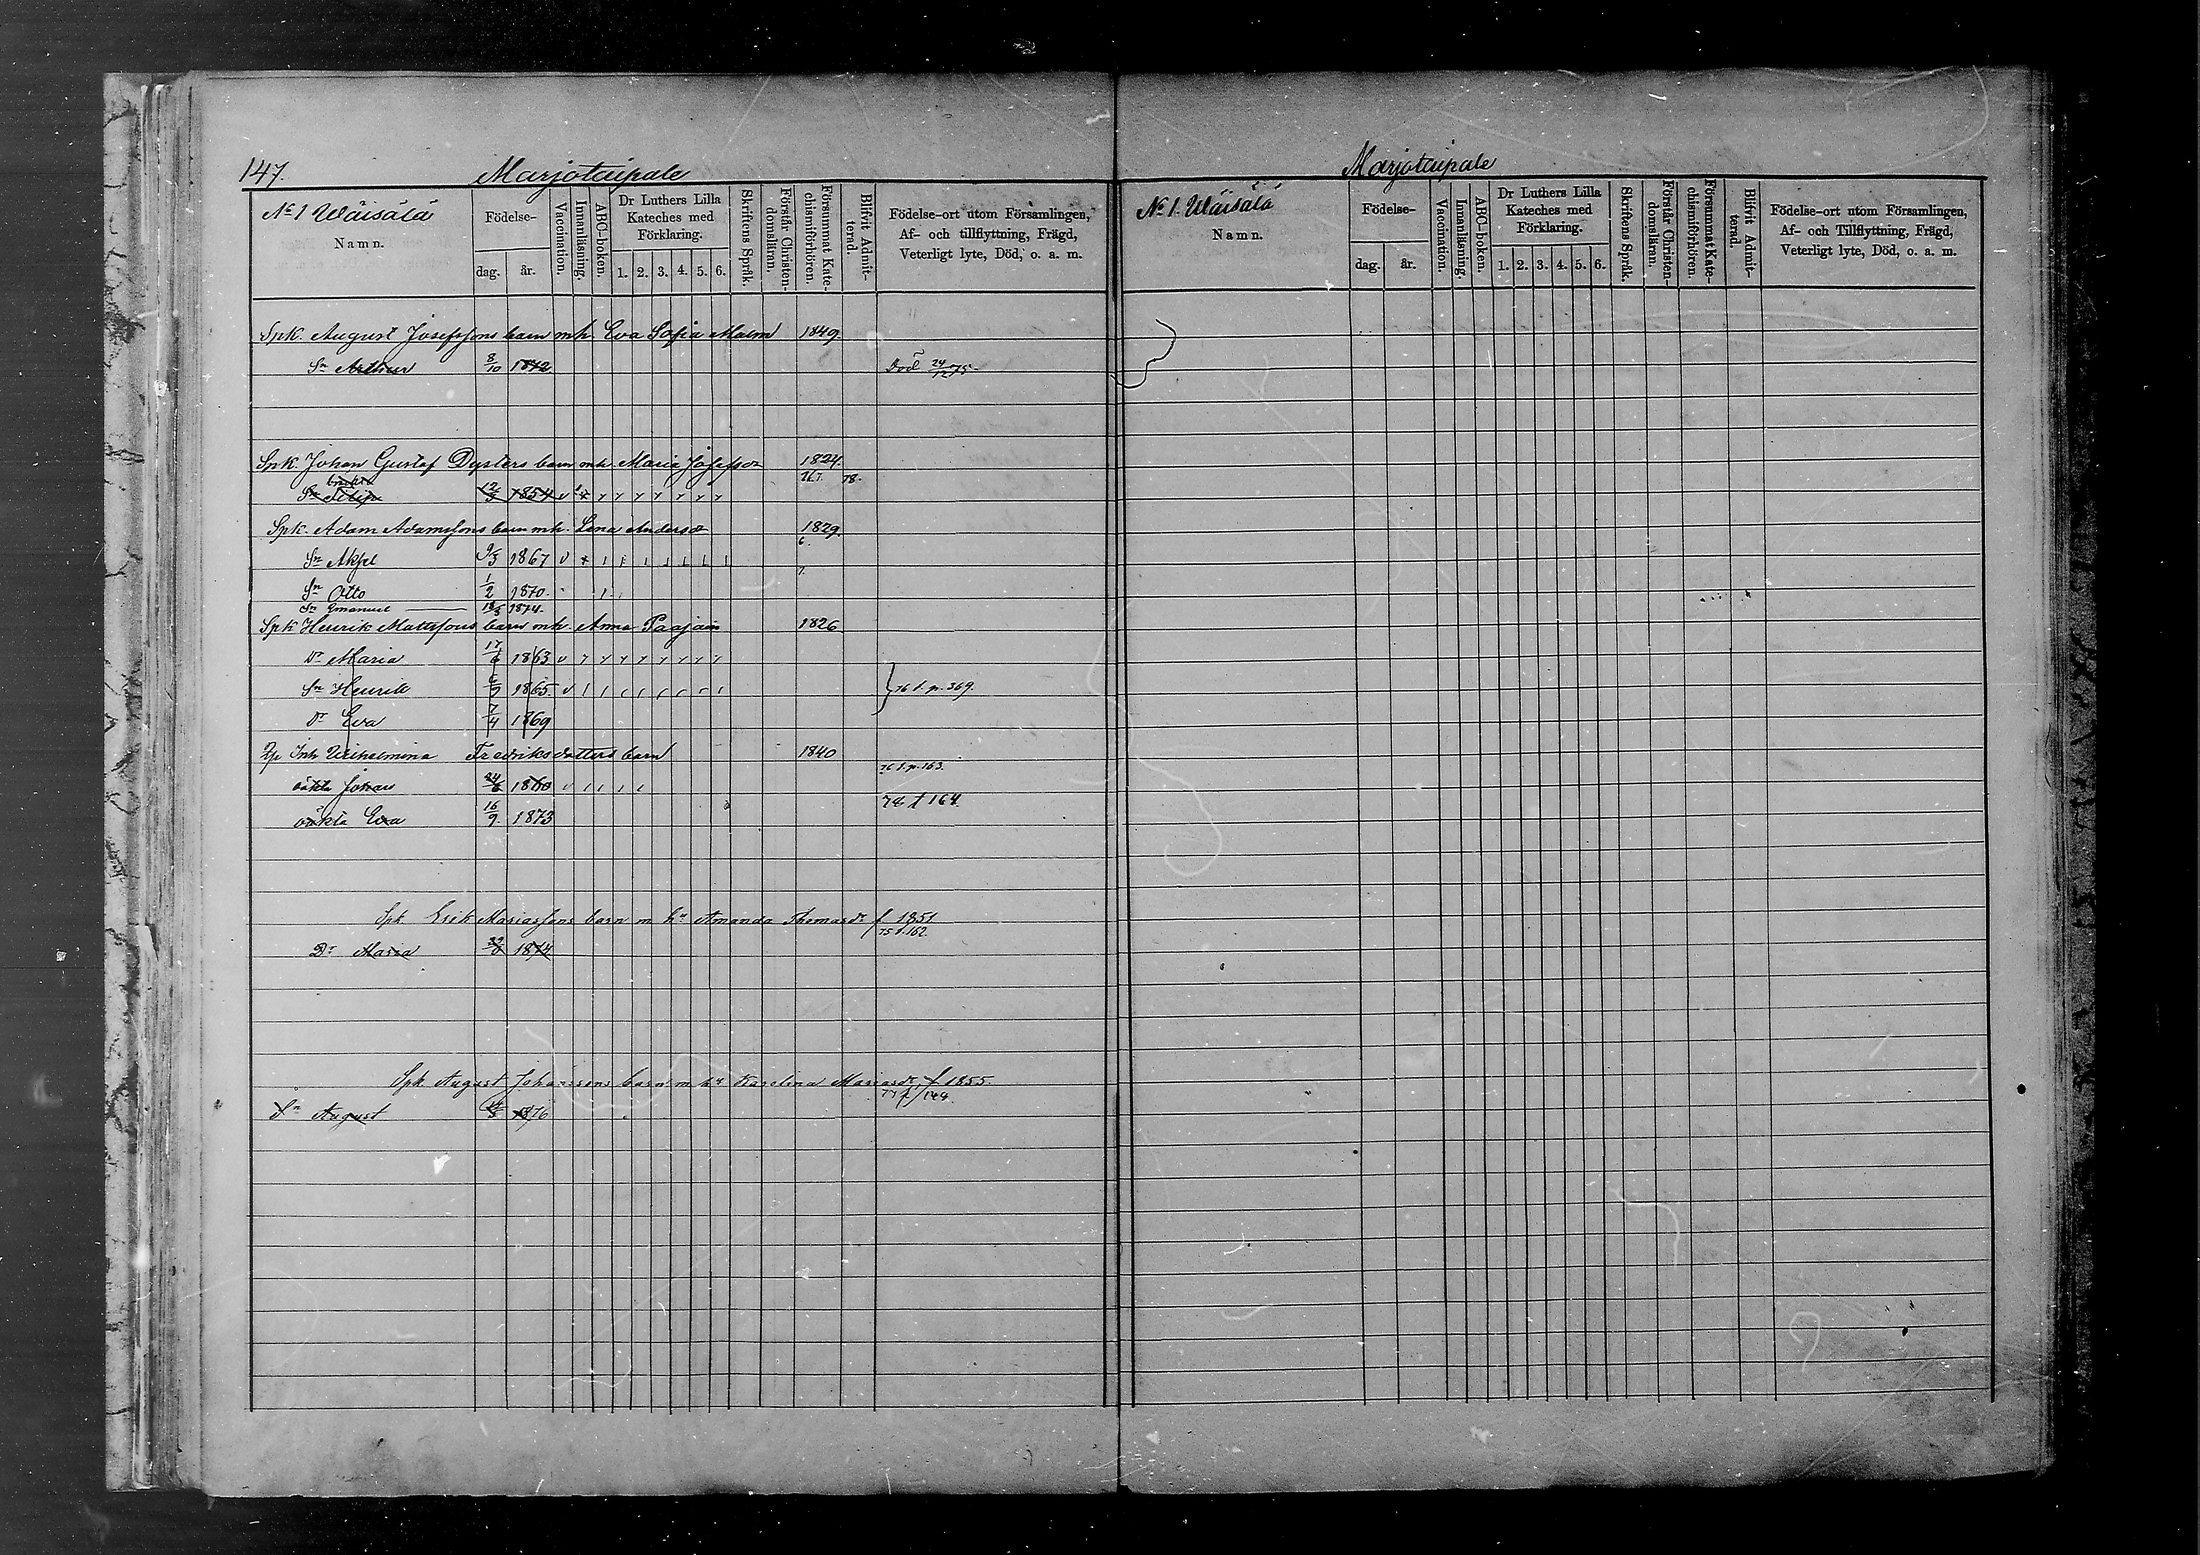 147.
Marjotaipale
No 1 Wäisälä
Namn.
Födelse-
dag.
år.
Vaccination.
Innanläsning.
ABC-boken.
Dr Luthers Lilla
Kateches med
Förklaring.
1. 2. 3. 4. 5. 6.
Skriftens Språk.
Förstår Christen-
domsläran.
Försummat Kate-
chismiförhören.
Blifvit Admit-
terad.
Födelse-ort utom Församlingen,
Af- och tillflyttning, Frägd,
Veterligt lyte, Död, o. a. m.
Spk. August Josefssons barn mh. Eva Sofia Malm 1849.
Sn Arthur 8/10 1872. Död 24/12 75.
Spk. Johan Gustaf Dysters barn mh. Maria Josefsdr 1824.
Sn 12/3 1854 v 78.
Spk. Adam Adamssons barn mh. Lena Andersdr 1829.
6.
Sn Aksel 9/3 1867 v
7.
Sn Otto 1/2 1870.
Sn Emanuel 18/5 1874.
Spk Henrik Mattssons barn mh. Anna Paajain 1826
Dr Maria 17/6 1863 v
Sn Henrik 6/9 1865. v } 76 f. p. 369.
Dr Eva 7/4 1869
Inh Wilhelmina Fredriksdotters barn 1840
76 f. p. 163.
oäkta Johan 24/6 1860 v
78 f 164.
oäkta Eva 16/9. 1873
Spk. Erik Mariassons barn m hu Amanda Thomasdr f 1851
75 f. 162.
Dr Maria 1874
Spk. August Johanssons barn m hu Karolina Mariasdr f 1855.
77 f 144.
Sn August 1876
Marjotaipale
No 1. Wäisälä
Namn.
Födelse-
dag.
år.
Vaccination.
Innanläsning.
ABC-boken.
Dr Luthers Lilla
Kateches med
Förklaring.
1. 2. 3. 4. 5. 6.
Skriftens Språk.
Förstår Christen-
domsläran.
Försummat Kate-
chismiförhören.
Blifvit Admit-
terad.
Födelse-ort utom Församlingen,
Af- och Tillflyttning, Frägd,
Veterligt lyte, Död, o. a. m.